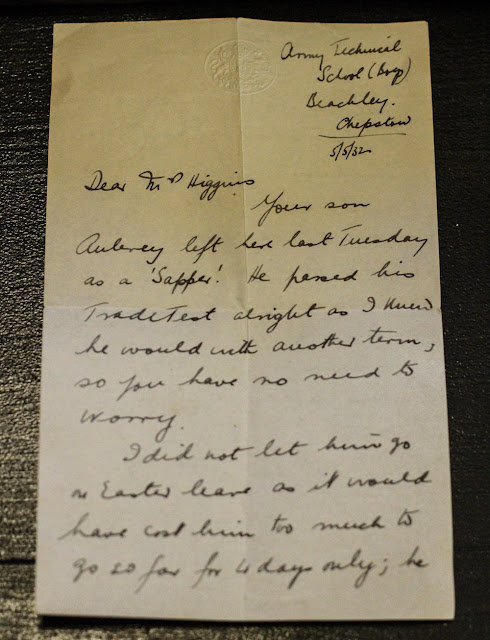 Army Technical
School (Boys)
Beachley.
Chepstow
5/5/32
Dear Mrs Higgins
Your son
Aubrey left here last Tuesday
as a 'Sapper'. He passed his
Trade Test alright as I knew
he would with another term,
so you have no need to
worry.
I did not let him go
on Easter leave as it would
have cost him too much to
go so far for 4 days only; he